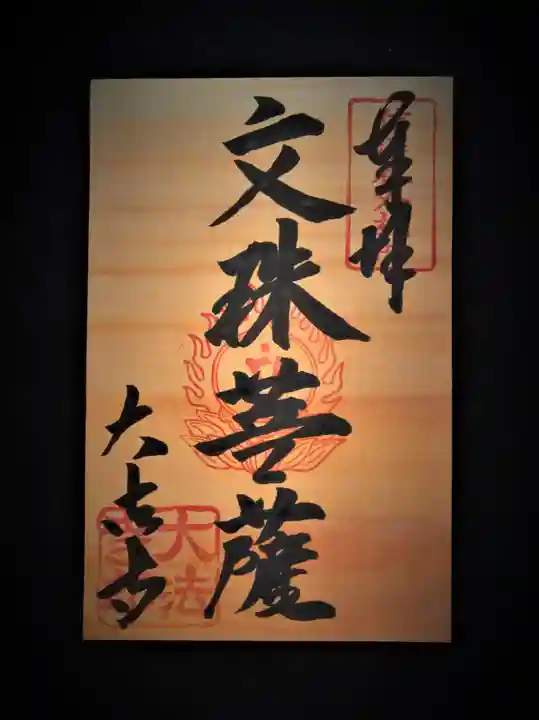 奉拝
文珠菩薩
大法寺
大法